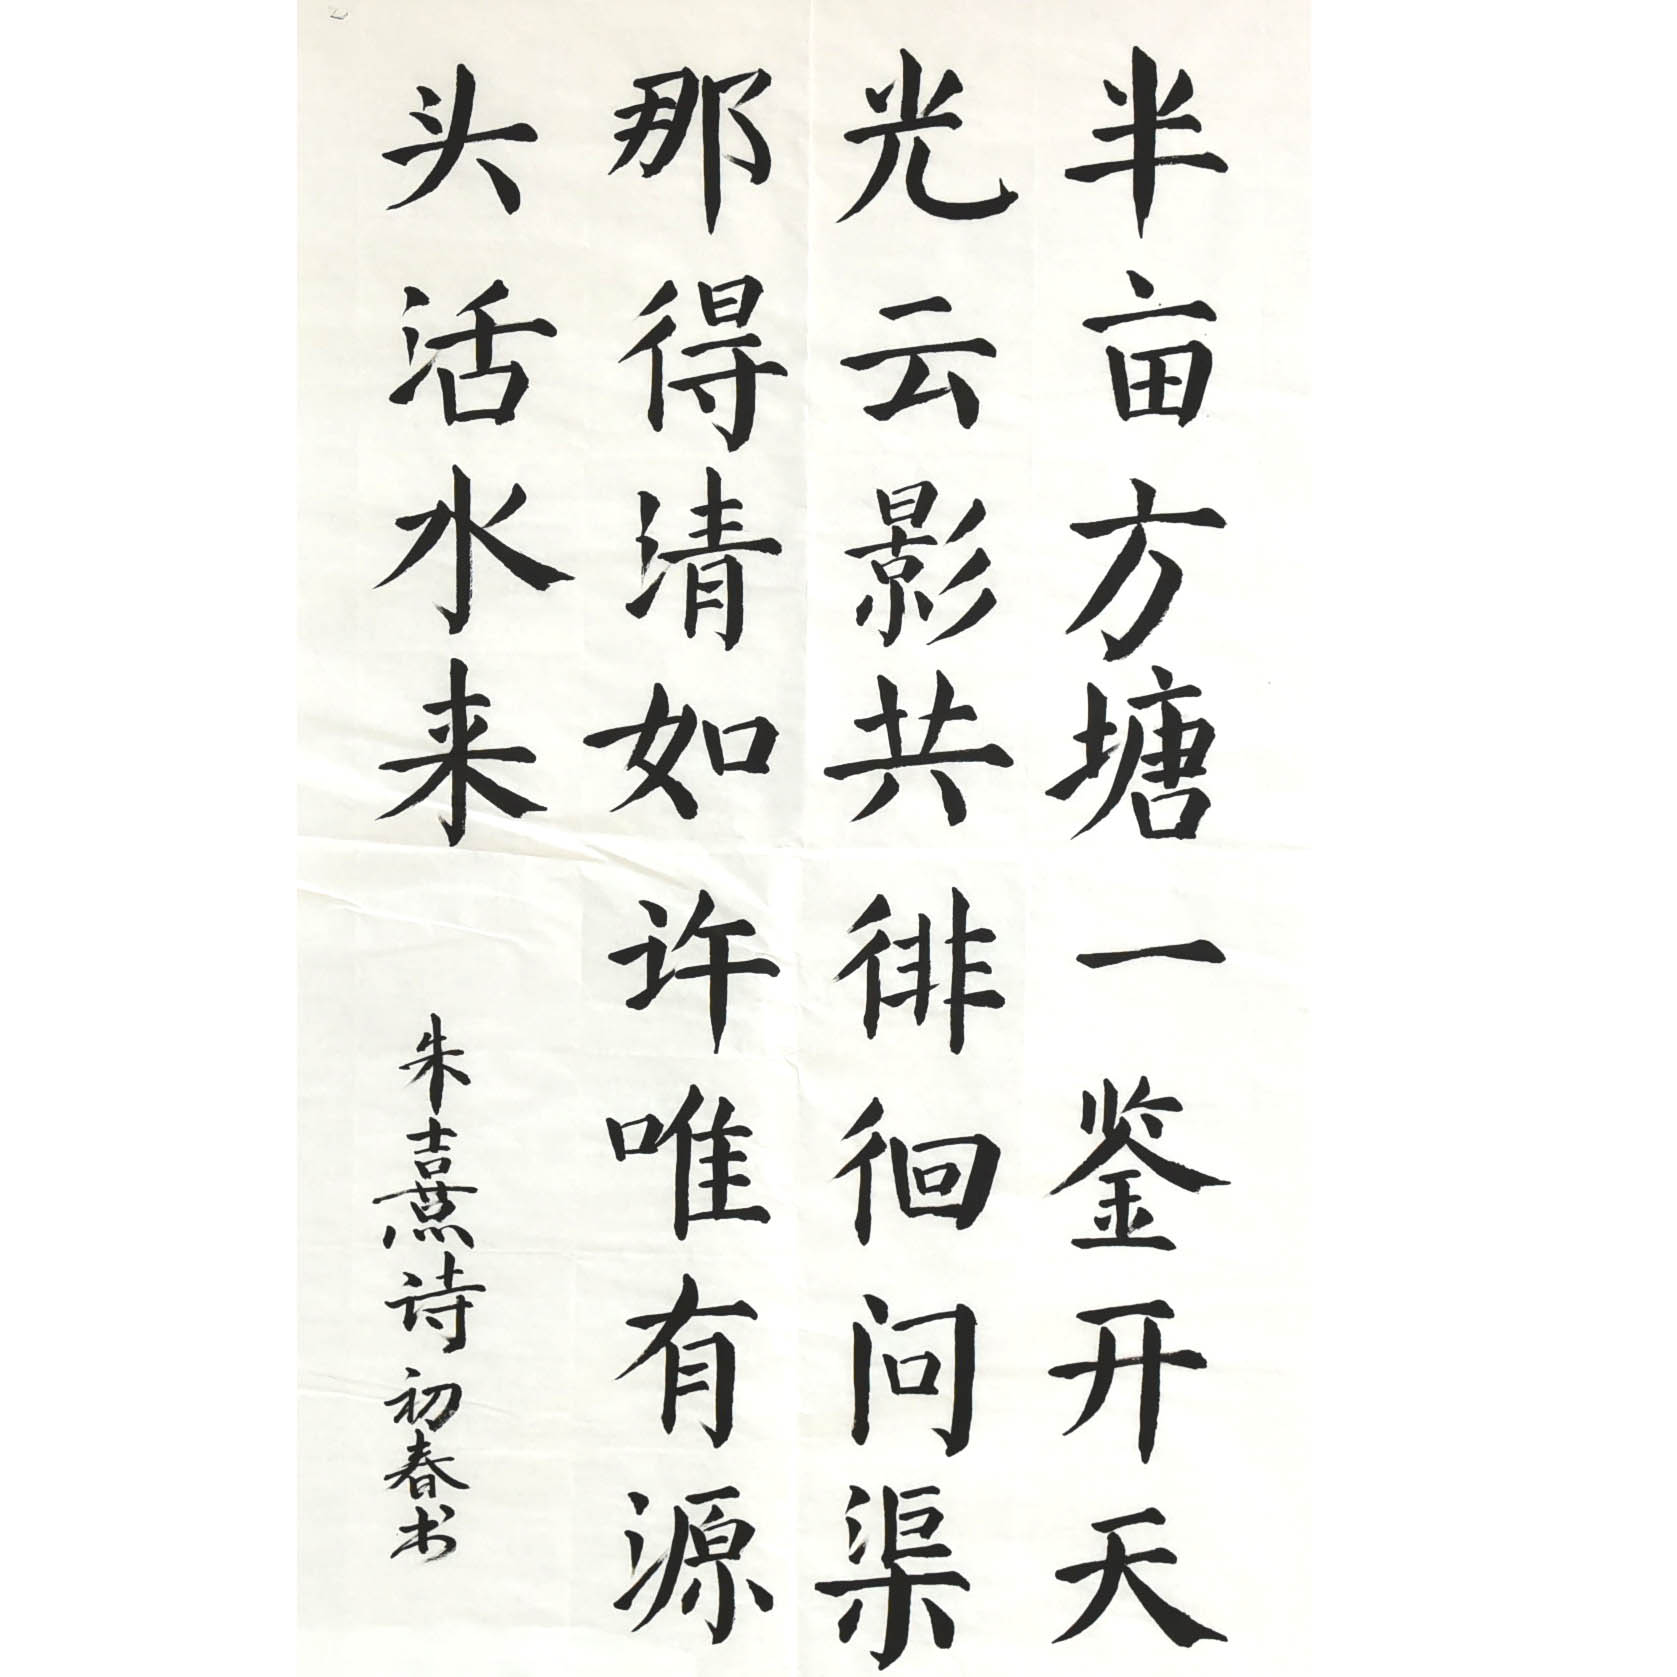 半亩方塘一鉴开天
光云影共徘徊问渠
那得清如许唯有源
头活水来
朱熹诗初春书